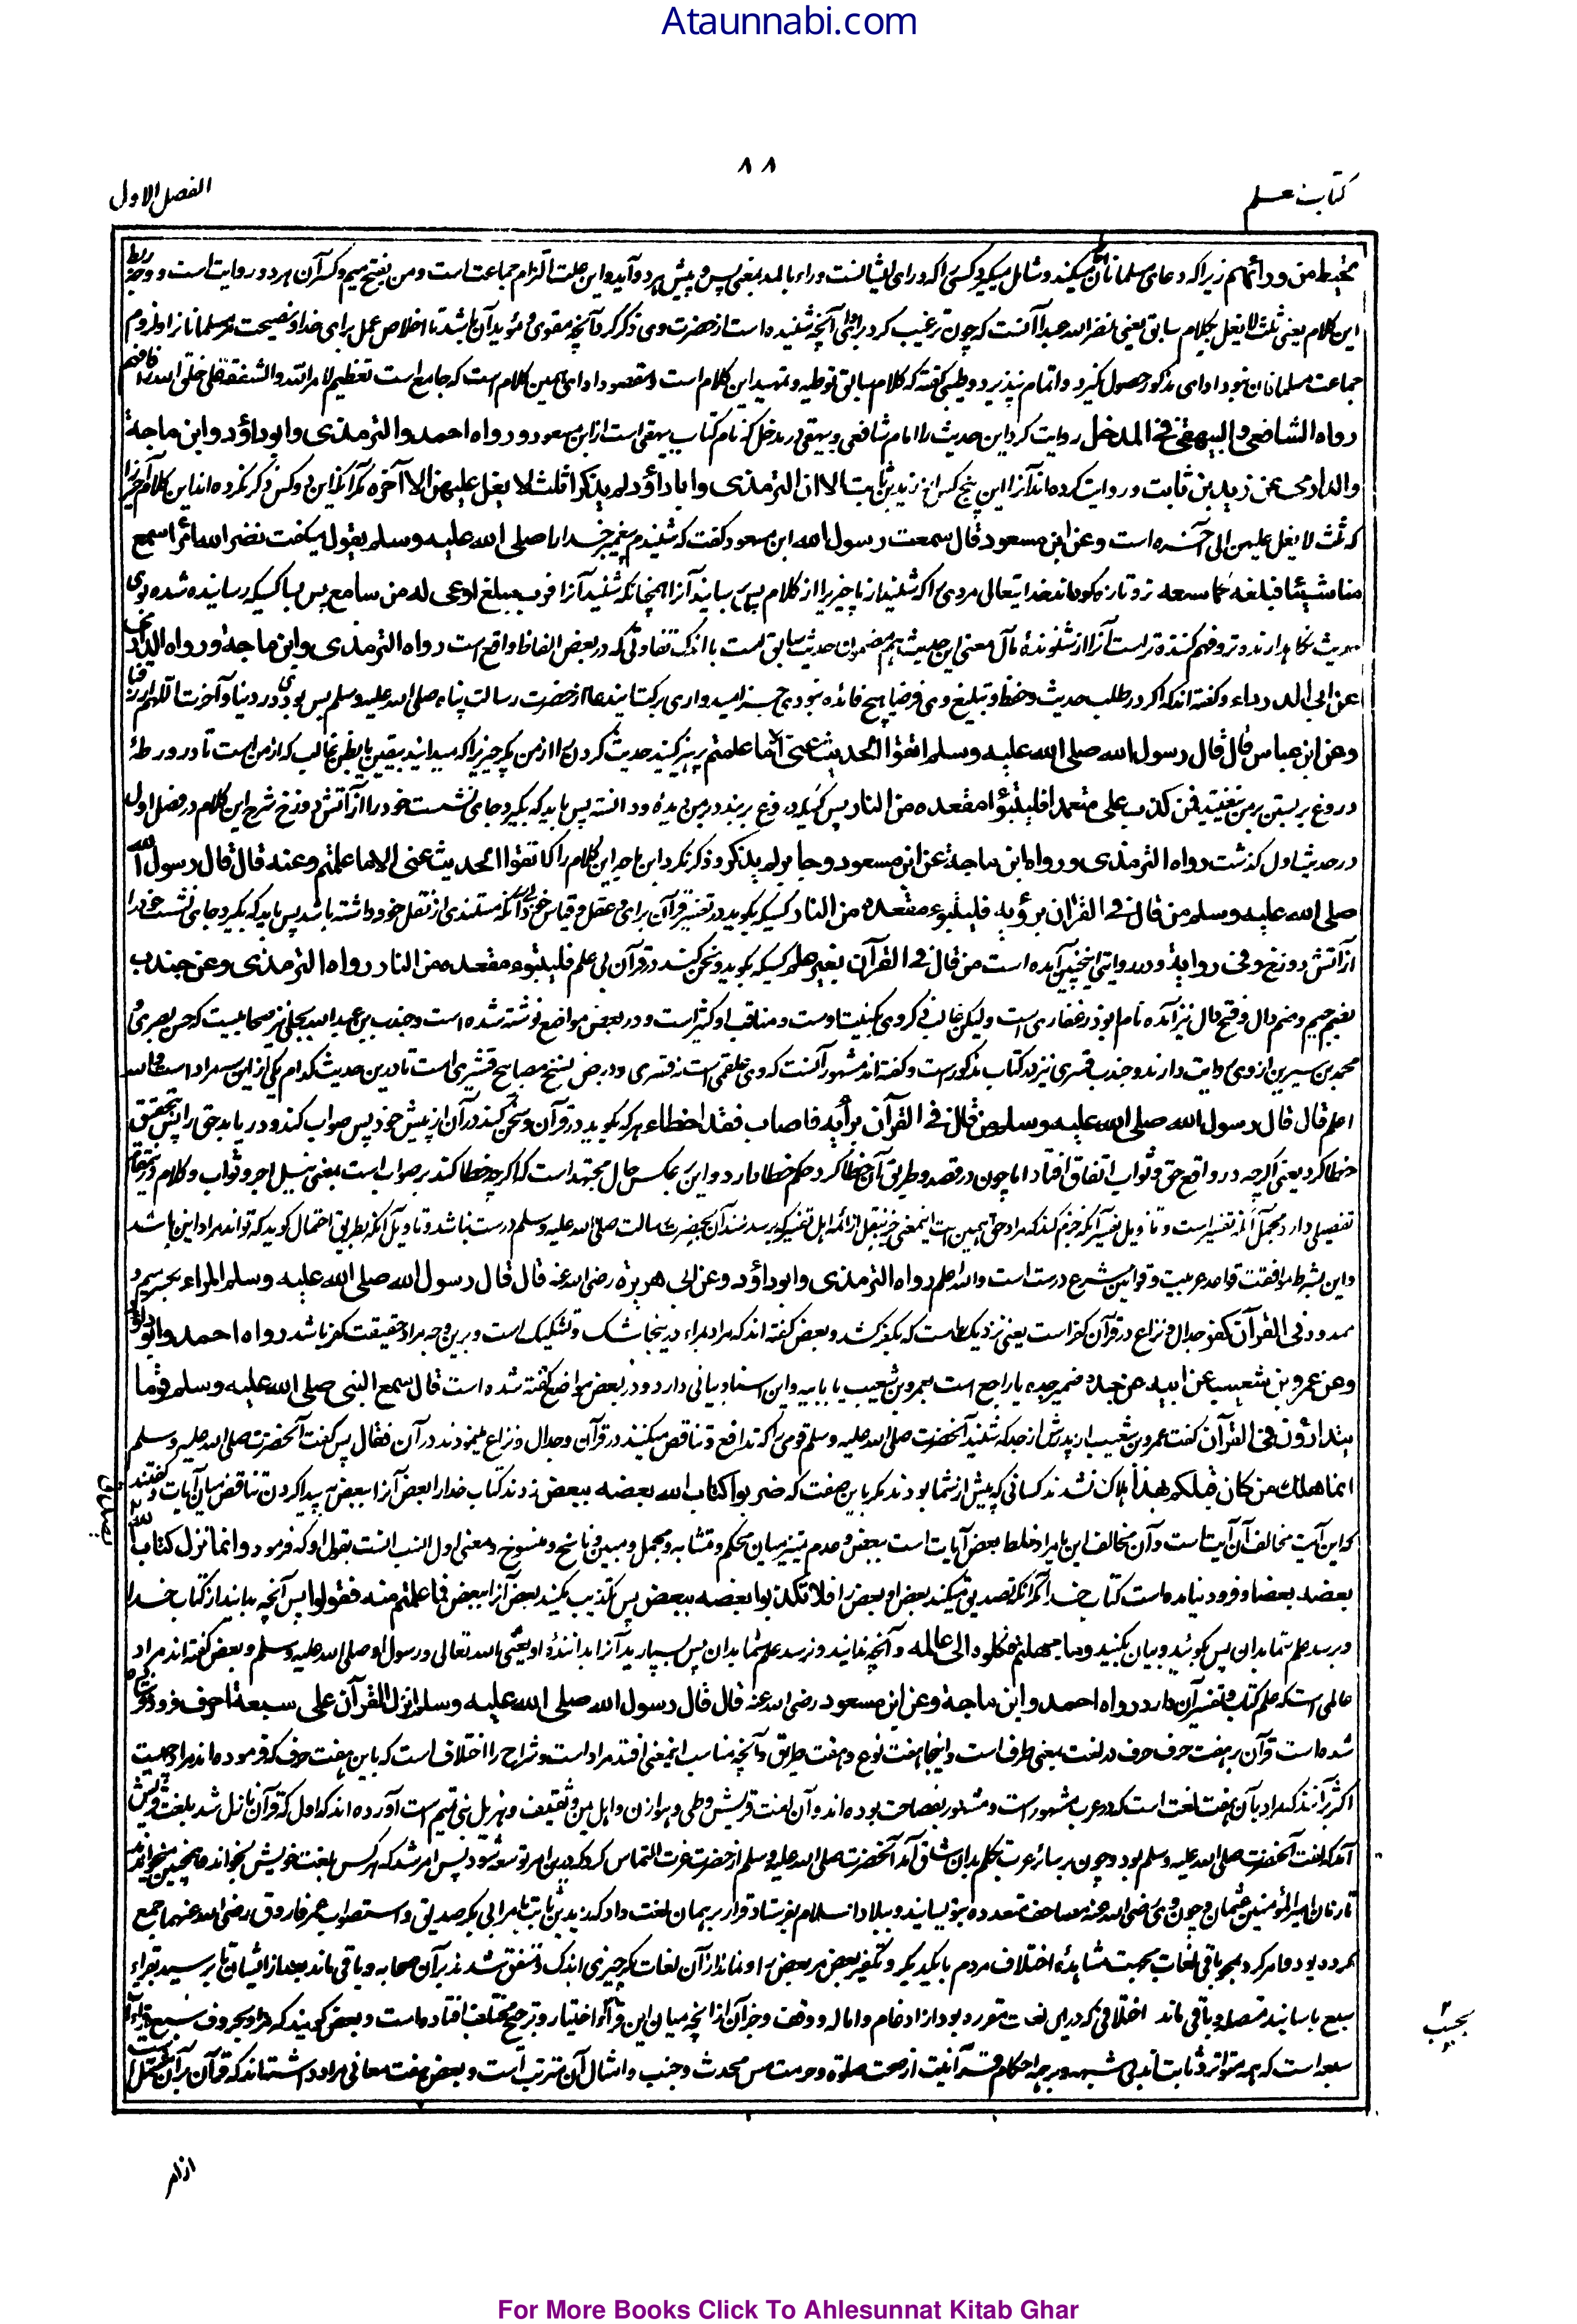 Ataunnabi.com
٨٨
کتاب علم
الفصل الاول
محیط من ورائهم زیرا که دعای مسلمانان میکند و شامل میگیرد کسی را که ورای ایشانست وراء بالمد بمعنی پس و پیش هر دو آید و این علت التزام جماعت است و من بفتح میم و کسر آن هر دو روایت است و وجه ربط
این کلام یعنی ثلث لا یغل بکلام سابق یعنی نضر الله عبدا آنست که چون ترغیب کرد بر ادای آنچه شنیده است از حضرت وی ذکر کرد آنچه مقوی و مؤید آن باشد تا اخلاص عمل برای خدا و نصیحت مر مسلمانان را و لزوم
جماعت مسلمانان نبود ادای مذکور حصول نگیرد و اتمام نپذیرد و طیبی گفته که کلام سابق توطیه و تمهید این کلام است و مقصود ادای همین کلام است که جامع است تعظیم لامر الله و الشفقة علی خلق الله را فافهم
رواه الشافعی والبیهقی فی المدخل روایت کرد این حدیث را امام شافعی و بیهقی در مدخل که نام کتاب بیهقی است از ابن مسعود ورواه احمد والترمذی وابوداؤد وابن ماجة
والدارمی عن زید بن ثابت و روایت کرده اند آنرا این پنج کس از زید بن ثابت الا ان الترمذی وابا داؤد لم یذکرا ثلث لا یغل علیهن الا آخره مگر آنکه این دو کس ذکر نکرده اند این کلام آخر را
که ثلث لا یغل علیهن الی آخره است وعن ابن مسعود قال سمعت رسول الله ابن مسعود گفت که شنیدم پیغمبر خدا را صلی الله علیه وسلم یقول میگفت نضر الله امرأ سمع
منا شیئا فبلغه کما سمعه تر و تازه گرداند خدایتعالی مردی را که شنید از ما چیزی را از کلام پس رسانید آنرا همچنانکه شنید آنرا فرب مبلغ اوعی له من سامع پس بسا کسیکه رسانیده شده بوی
حدیث نگاه دارنده تر و فهم کننده تر است آنرا از شنونده مآل معنی این حدیث هم مضمون حدیث سابق است با اندک تفاوتی که در بعض الفاظ واقع است رواه الترمذی وابن ماجة ورواه الدارمی
عن ابی الدرداء و گفته اند که اگر در طلب حدیث و حفظ و تبلیغ وی فرضا هیچ فائده نبودی جز امیدواری برکت این دعا از حضرت رسالت پناه صلی الله علیه وسلم بس بودی در دنیا و آخرت اللهم ارزقنا
وعن ابن عباس قال قال رسول الله صلی الله علیه وسلم اتقوا الحدیث عنی الا ما علمتم پرهیز کنید حدیث کردن را از من مگر چیزیرا که میدانید بیقین یا بظن غالب که از من است تا در ورطهٔ
دروغ بر بستن بر من نیفتید فمن کذب علی متعمدا فلیتبوأ مقعده من النار پس کسیکه دروغ بربندد بر من دیده و دانسته پس باید که بگیرد جای نشست خود را از آتش دوزخ شرح این کلام در فصل اول
در حدیث اول گذشت رواه الترمذی ورواه ابن ماجة عن ابن مسعود وجابر ولم یذکر و ذکر نکرد ابن ماجه این کلام را که اتقوا الحدیث عنی الا ما علمتم وعنه قال قال رسول الله
صلی الله علیه وسلم من قال فی القرآن برأیه فلیتبوء مقعده من النار کسیکه بگوید در تفسیر قرآن برای و عقل و قیاس خود بی آنکه مستندی از نقل خود داشته باشد پس باید که بگیرد جای نشست خود را
از آتش دوزخ وفی روایة و در روایتی اینچنین آمده است من قال فی القرآن بغیر علم کسیکه بگوید و سخن کند در قرآن بی علم فلیتبوء مقعده من النار رواه الترمذی وعن جندب
بضم جیم و ضم دال و فتح دال نیز آمده نام ابوذر غفاری است ولیکن غالب ذکر وی بکنیت اوست و مناقب او کثیر است و در بعض مواضع نوشته شده است و جندب بن عبد الله بجلی نیز صحابیست که حسن بصری و
محمد بن سیرین از وی روایت دارند و جندب قسری نیز در کتاب مذکور است و گفته اند مشهور آنست که وی علقمی است نه قسری و در بعض نسخ مصابیح قشیری است تا درین حدیث کدام یکی از این سه مراد است والله
اعلم قال قال رسول الله صلی الله علیه وسلم من قال فی القرآن برأیه فاصاب فقد اخطاء هر که بگوید در قرآن و سخن کند در آن از پیش خود پس صواب کند و دریابد حق را پس بتحقیق
خطا کرد یعنی اگرچه در واقع حق و ثواب اتفاق افتاد اما چون در قصد و طریق آن خطا کرد حکم خطا دارد و این بر عکس حال مجتهد است که اگرچه خطا کند بر صواب است بمعنی نیل اجر و ثواب و کلام درین مقام
تفصیلی دارد مجمل آنکه تفسیر است و تاویل تفسیر آنکه جزم کند که مراد حق همین است اینمعنی جز بنقل از ائمه اهل تفسیر که برسد سند آن بحضرت رسالت صلی الله علیه وسلم درست نباشد و تاویل آنکه بطریق احتمال گوید که تواند مراد این باشد
و این بشرط موافقت قواعد عربیت و قوانین شرع درست است والله اعلم رواه الترمذی وابوداؤد وعن ابی هریرة رضی الله عنه قال قال رسول الله صلی الله علیه وسلم المراء بکسر میم و
ممدود فی القرآن کفر جدال و نزاع در قرآن کفر است یعنی نزدیک است که بکفر کشد و بعض گفته اند که مراد بمراء درینجا شک و تشکیک است و برین وجه مراد حقیقت کفر باشد رواه احمد وابوداؤد
وعن عمرو بن شعیب عن ابیه عن جده ضمیر جده یا راجع است بعمرو بن شعیب یا بابیه و این اسناد بیانی دارد و در بعض مواضع گفته شده است قال سمع النبی صلی الله علیه وسلم قوما
یتدارؤن فی القرآن گفت عمرو بن شعیب از پدرش از جد که شنید آنحضرت صلی الله علیه وسلم قومی را که تدافع و تناقض میکنند در قرآن و جدال و نزاع مینمودند در آن فقال پس گفت آنحضرت صلی الله علیه وسلم
انما هلك من کان قبلکم بهذا هلاک نشدند کسانی که پیش از شما بودند مگر باین صفت که ضربوا کتاب الله بعضه ببعض زدند کتاب خدا را بعض آنرا ببعض به پیدا کردن تناقض میان آیات و گفتند
که این آیت مخالف آن آیت است و آن مخالف این یا مراد خلط بعض آیات است ببعض و عدم تمیز میان محکم و متشابه و مجمل و مبین و ناسخ و منسوخ و معنی اول انسب است بقول او که فرمود وانما نزل کتاب الله
بعضه بعضا و فرود نیامده است کتاب خدا مگر آنکه تصدیق میکند بعض او بعض را فلا تکذبوا بعضه ببعض پس تکذیب مکنید بعض آنرا ببعض فما علمتم منه فقولوا پس آنچه بدانید از کتاب خدا
و برسد علم شما بدان پس بگوئید و بیان بکنید وما جهلتم فکلوه الی عالمه و آنچه ندانید و نرسد علم شما بدان پس بسپارید آنرا بدانندهٔ او یعنی بالله تعالی و رسول او صلی الله علیه وسلم و بعض گفته اند مراد
عالمی است که علم کتاب و تفسیر آن دارد رواه احمد وابن ماجة وعن ابن مسعود رضی الله عنه قال قال رسول الله صلی الله علیه وسلم انزل القرآن علی سبعة احرف فرود فرستاده
شده است قرآن بر هفت حرف حرف در لغت بمعنی طرف است و اینجا هفت نوع و هفت طریق و آنچه مناسب اینمعنی افتد مراد است و شراح را اختلاف است که باین هفت حرف که فرموده اند مراد چیست
اکثر برآنند که مراد بآن هفت لغت است که در عرب مشهور است و مشهور بفصاحت بوده اند و آن لغت قریش و طی و هوازن و اهل یمن و ثقیف و هذیل و بنی تمیم است آورده اند که اول که قرآن نازل شد بلغت قریش
آمد که لغت آنحضرت صلی الله علیه وسلم بود و چون بر سائر عرب تکلم بدان شاق آمد آنحضرت صلی الله علیه وسلم از حضرت عزت التماس کرد که درین امر توسعه شود پس امر شد که هر کس بلغت خویش بخواند همچنین میخواندند
تا زمان امیر المؤمنین عثمان و چون وی رضی الله عنه مصاحف متعدده نویسانید و ببلاد اسلام بفرستاد قرار بر همان لغت داد که زید بن ثابت بامر ابی بکر صدیق و استصواب عمر فاروق رضی الله عنهما جمع
کرده بود و امر کرد بمحو باقی لغات بجهت مشاهدهٔ اختلاف مردم با یکدیگر و تکفیر بعض مر بعض را و نماند از آن لغات مگر چیزی اندک و متفق شدند بر آن صحابه و باقی ماند بعد از ایشان تا رسید بقراء
سبع باسانید متصله و باقی ماند اختلافی که درین لغت مقرر بود از ادغام و اماله و وقف و جز آن از آنچه میان این قراء اختیار و ترجیح مختلف افتاده است و بعض گویند که مراد بحروف سبع قراآت
سبعه است که همه متواتر و ثابت اند بی شبهه و مرجع احکام قرآنیت از صحت صلوة و حرمت مس محدث و جنب و امثال آن مترتب است و بعض هفت معانی مراد داشته اند که قرآن بر آن مشتمل است
یصدق
از امر
For More Books Click To Ahlesunnat Kitab Ghar